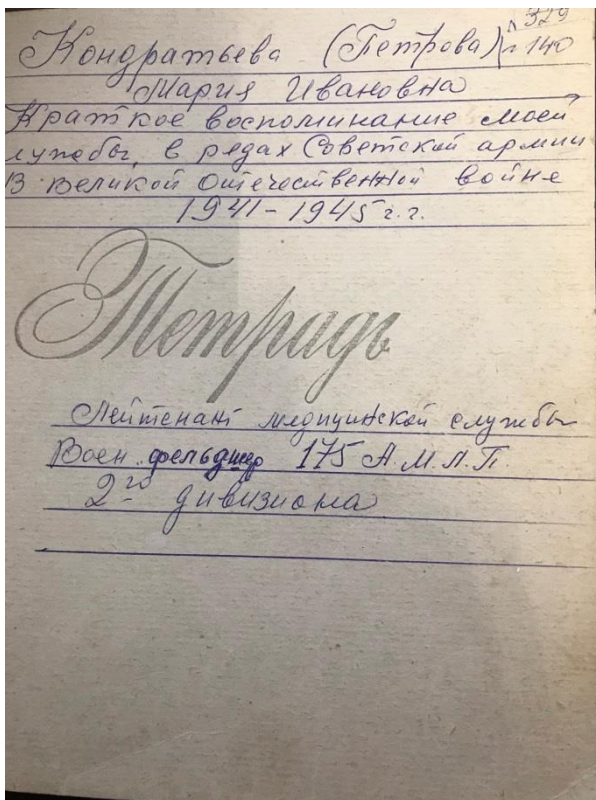 Кондратьева (Петрова) 329
140
Мария Ивановна
Краткое воспоминание моей
лужебы, в рядах Советской армии
В великой отечественной войне
1941-1945 г.г.
Тетрадь
Лейтенант медицинской службы
Воен. фельдшер 175 А.М.П.П.
2го дивизиона